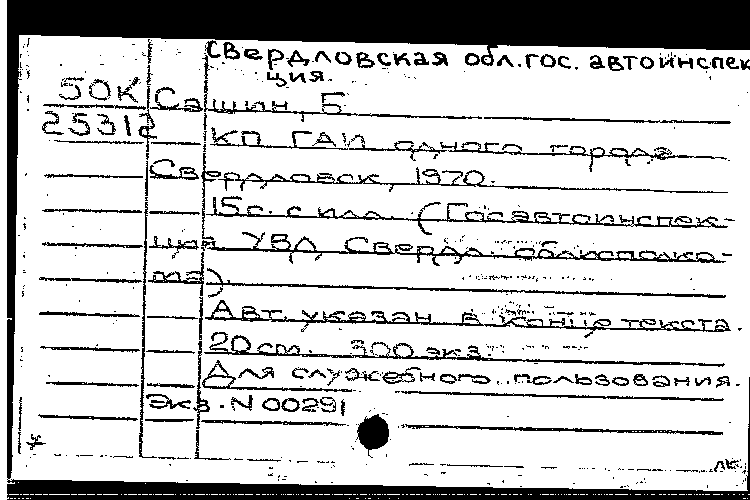 Свердловская обл. гос. автоинспек
ция.
50К Сашин, Б.
25312 КП ГАИ одного города
Свердловск, 1970.
15 с. с илл. (Госавтоинспек-
ция УВД Свердл. облисполко-
ма).
Авт. указан в конце текста.
20 см. 300 экз.
Для служебного пользования.
Экз. N 00291
лк.